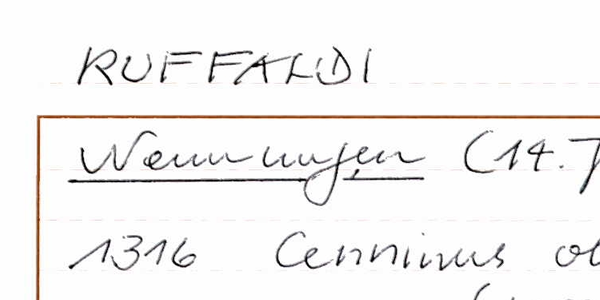 RUFFALDI
Nennungen (14.
1316 Cenninus